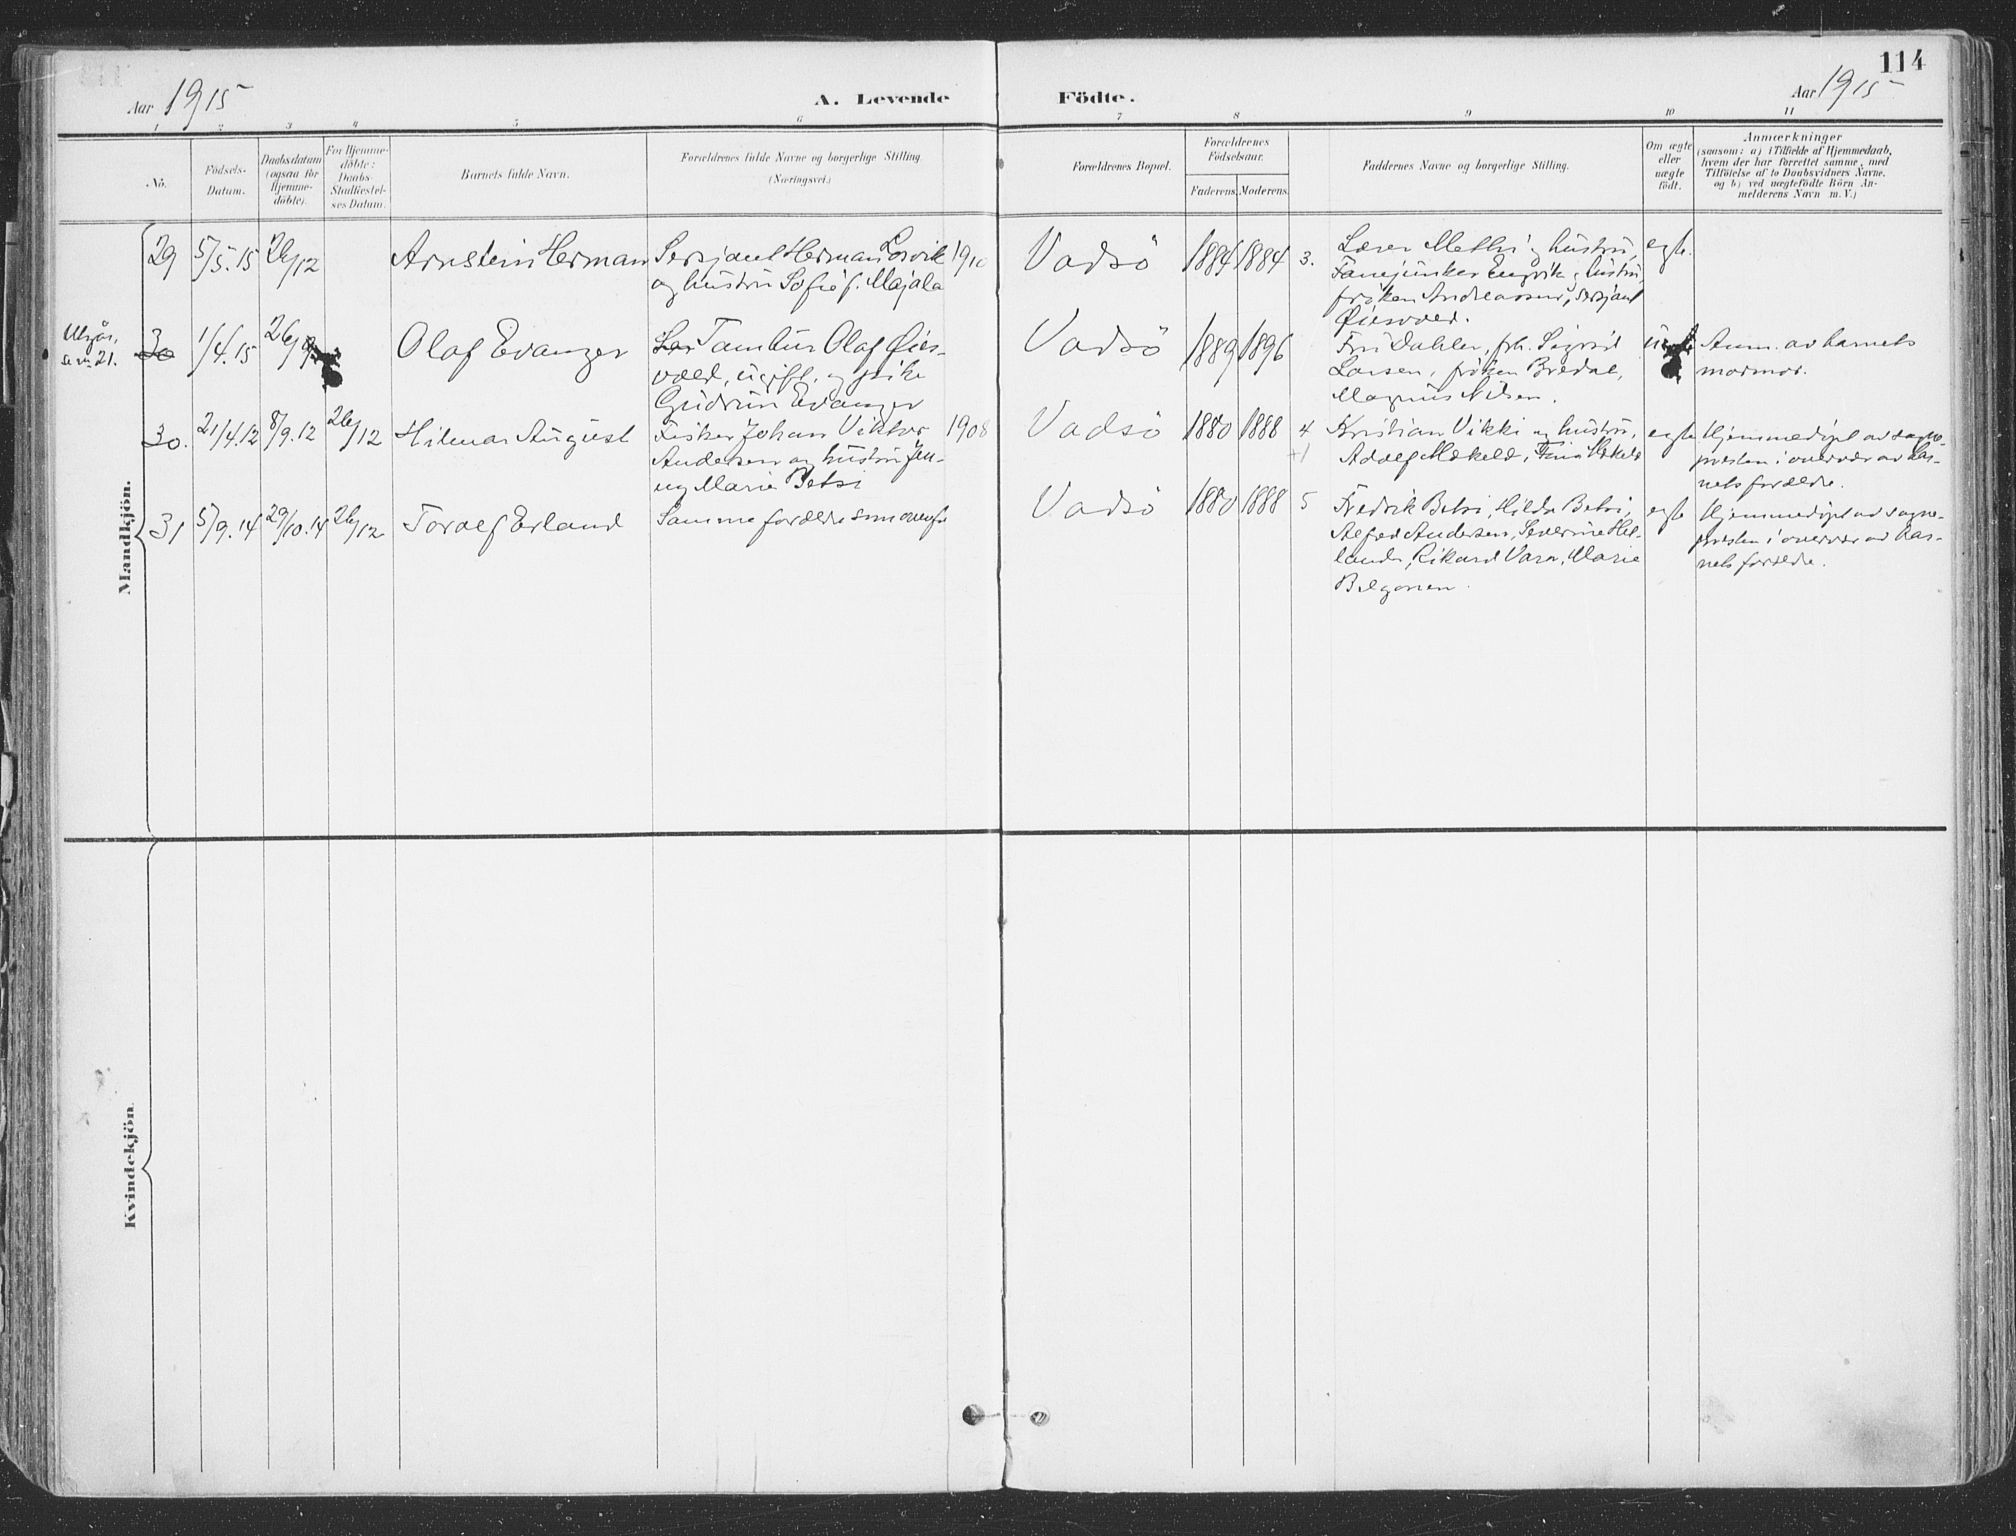 114
Aar 1915
A. Levende Födte.
Aar 1915
1 2 3 4 5 6 7 8 9 10 11
No.
Födsels-
Datum.
Daabsdatum
(ogsaa for
Hjemme-
döbte).
For Hjemme-
döbte:
Daabs-
Stadfæstel-
ses Datum.
Barnets fulde Navn.
Forældrenes fulde Navne og borgerlige Stilling.
(Næringsvei.)
Forældrenes Bopæl.
Forældrenes
Födselsaar.
Faderens. Moderens.
Faddernes Navne og borgerlige Stilling.
Om ægte
eller
uægte
født.
Anmærkninger
(saasom: a) i Tilfælde af Hjemmedaab,
hvem der har forrettet samme, med
Tilföielse af to Daabsvidners Navne,
og b) ved uægtefödte Börn An-
melderens Navn m. V.)
Mandkjön.
29 5/5.15 26/12 Arnstein Herman
Sersjant Herman
og hustru Sofie f. Majala
1910 Vadsö 1884 1884 3.
Lærer Methi og hustru,
Fanejunker Engvik og hustru,
fröken Andreassen, sersjant
Øiesvold.
egte.
Utgår,
21.
30 1/4.15 26/9 Olaf Evanger
Tambur Olaf Øies-
vold, ugift, og pike
Gudrun Evanger
Vadsö 1889 1896
Fru Dahler, frk. Sigrid
Larsen, fröken Bredal,
Magnus Nilsen.
Anm. av barnets
mormor.
30. 21/4.12 8/9.12 26/12 Hilmar August
Fisker Johan Viktor
Andersen og hustru Jen-
ny Marie Betsi
1908 Vadsö 1880 1888 4
+1
Kristian Vikki og hustru,
Adolf Mækelæ,
egte
Hjemmedöpt av sogne-
presten i overvær av bar-
nets forældre.
31 5/9.14 29/10.14 26/12 Toralf Erland
Samme forældre som ovenfor
Vadsö 1880 1888 5
Fredrik Betsi, Hilda Betsi,
Alfred Andersen, Severine Hel-
lander, Rikard Vara, Marie
Belgonen.
egte
Hjemmedöpt av sogne-
presten i overvær av bar-
nets forældre.
Kvindekjön.